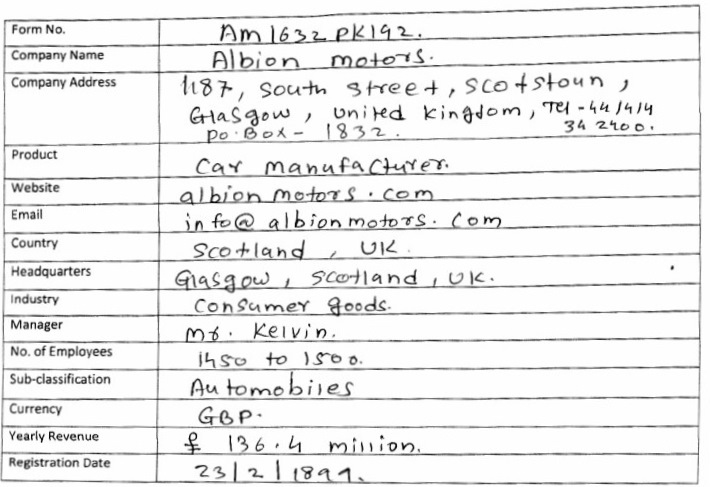 Form No. Am1632PK192.
Company Name Albion motors.
Company Address 1187, South street, scotstoun,
Glasgow, united kingdom, Tel-44 1414
PO.BOX- 1832. 34 2400.
Product Car manufacturer.
Website albionmotors.com
Email info@albionmotors.com
Country Scotland, UK.
Headquarters Glasgow, Scotland, UK.
Industry Consumer goods.
Manager Mr. Kelvin.
No. of Employees 1450 to 1500.
Sub-classification Automobiles
Currency GBP.
Yearly Revenue £ 136.4 million.
Registration Date 23/2/1899.